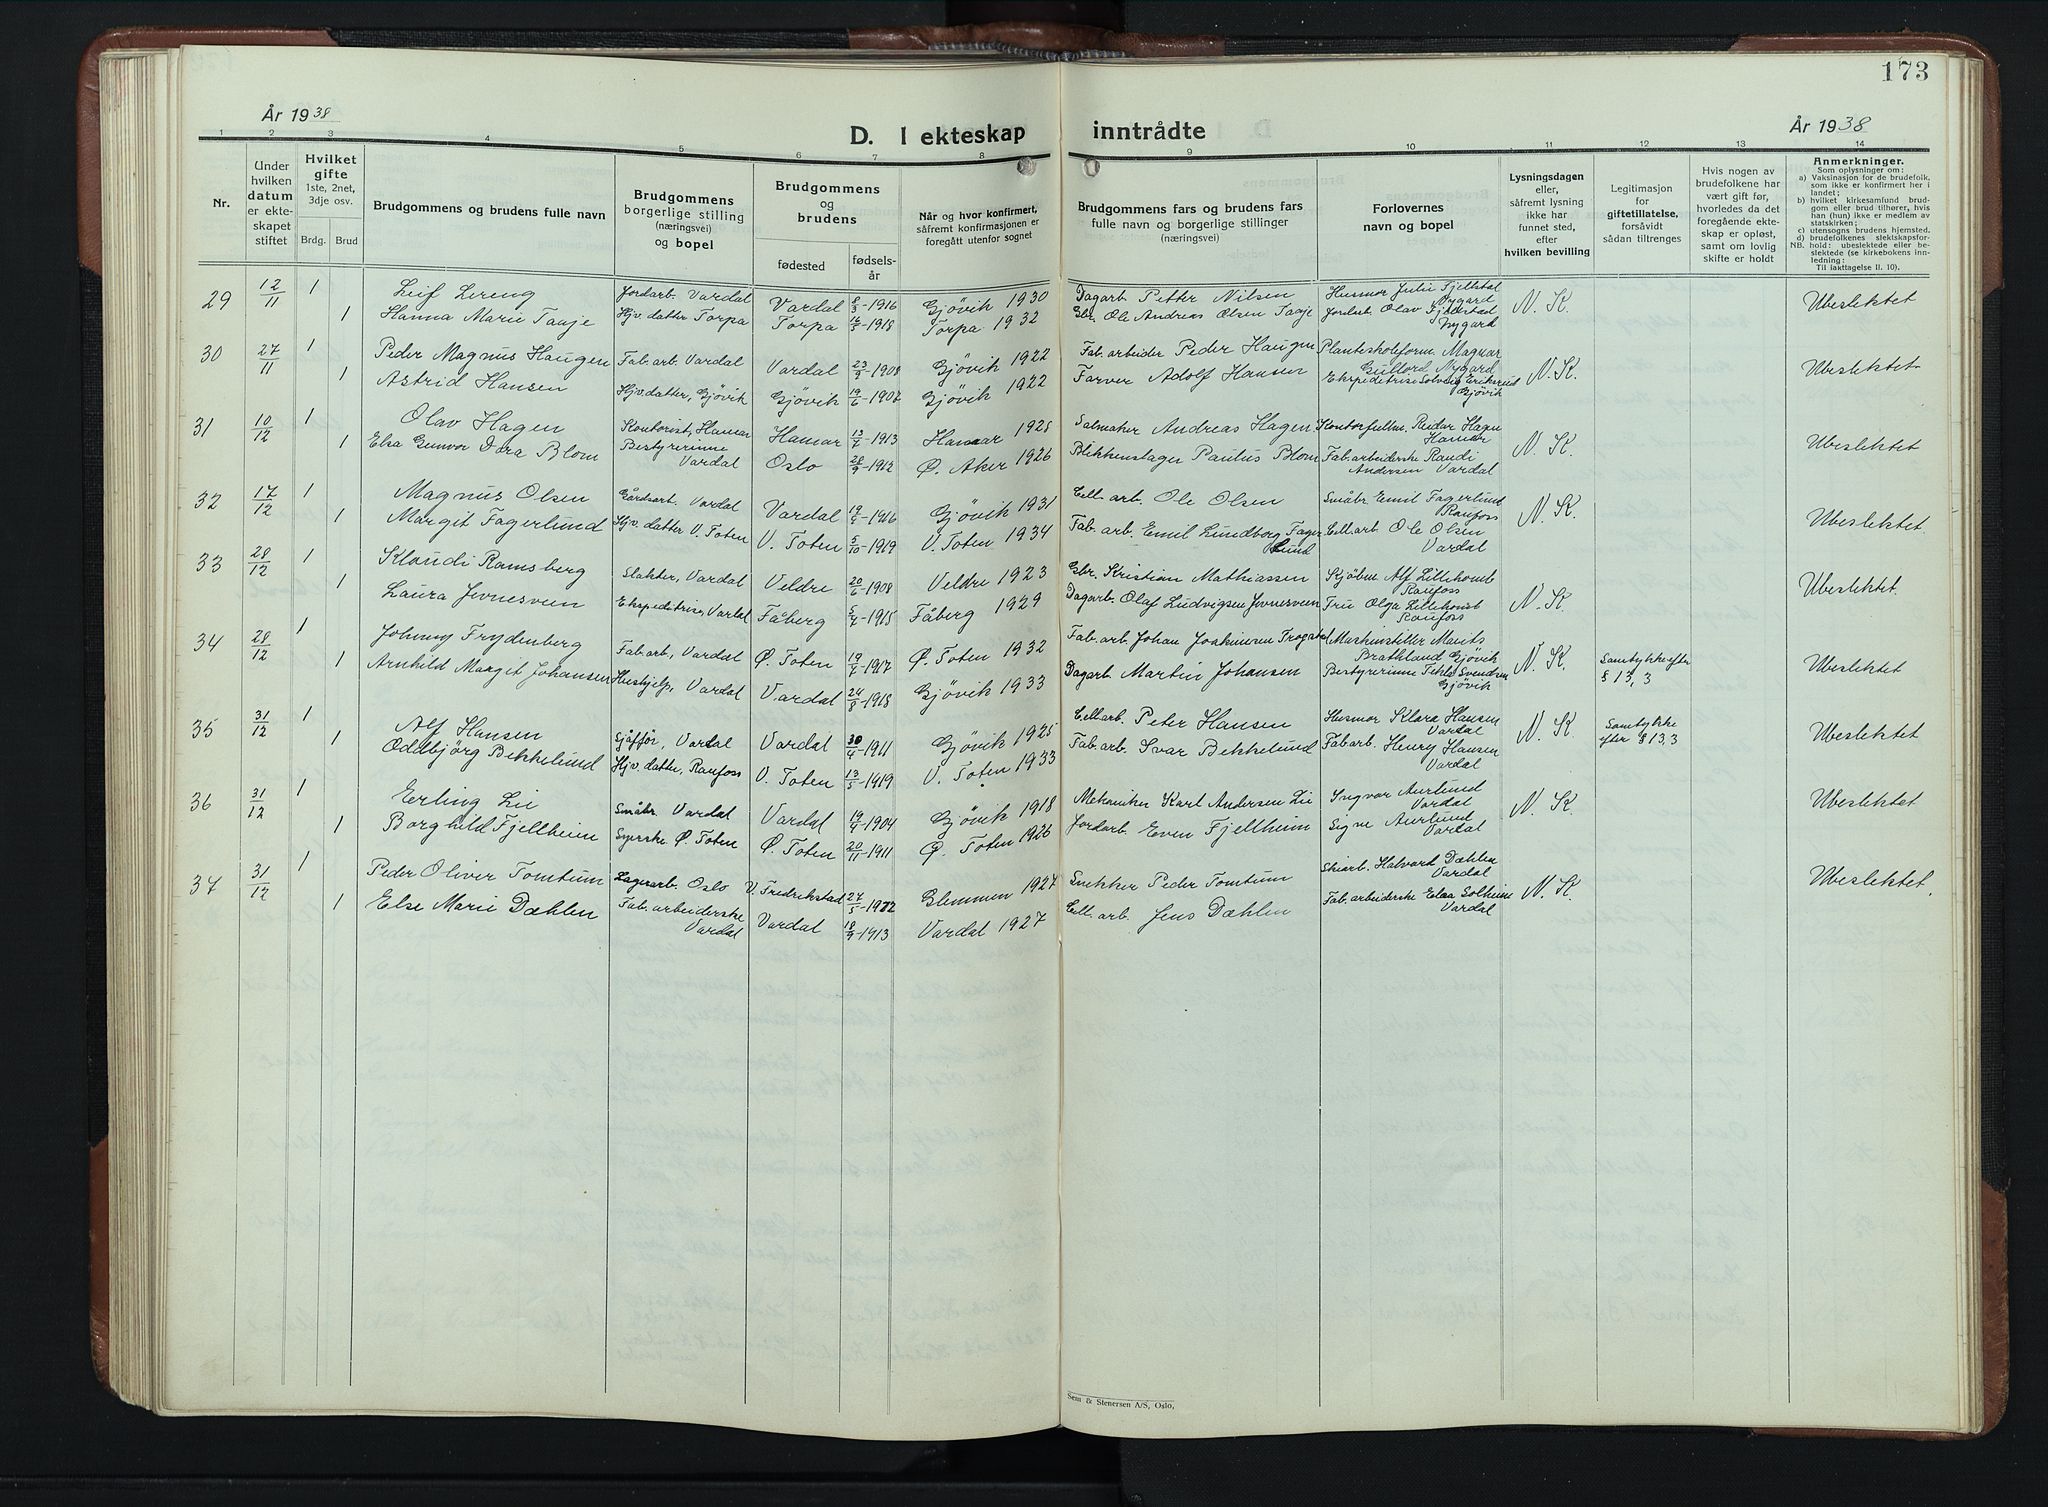 173
År 1938
D. I ekteskap inntrådte
År 1938
1 2 3 4 5 6 7 8 9 10 11 12 13 14
Nr.
Under hvilken datum er ekteskapet stiftet
Hvilket gifte 1ste, 2net, 3dje osv.
Brdg. Brud
Brudgommens og brudens fulle navn
Brudgommens borgerlige stilling (næringsvei) og bopel
Brudgommens og brudens
fødested fødselsår
Når og hvor konfirmert, såfremt konfirmasjonen er foregått utenfor sognet
Brudgommens fars og brudens fars fulle navn og borgerlige stillinger (næringsvei)
Forlovernes navn og bopel
Lysningsdagen eller, såfremt lysning ikke har funnet sted, efter hvilken bevilling
Legitimasjon for giftetillatelse, forsåvidt sådan tiltrenges
Hvis nogen av brudefolkene har vært gift før, hvorledes da det foregående ekteskap er opløst, samt om lovlig skifte er holdt
Anmerkninger.
Som oplysninger om:
a) Vaksinasjon for de brudefolk, som ikke er konfirmert her i landet;
b) hvilket kirkesamfund brudgom eller brud tilhører, hvis han (hun) ikke er medlem av statskirken;
c) utensogns brudens hjemsted.
d) brudefolkenes slektskapsforhold: ubeslektede eller beslektede (se kirkebokens innledning:
NB. Til iakttagelse II. 10).
29 12/11 1 Leif Lereng Jordarb. Vardal Vardal 8/3-1916 Gjøvik 1930 Dagarb. Petter Nilsen Husmor Julie Fjellstad Nygard N. K. Ubeslektet
1 Hanna Marie Taaje Hjv. datter Torpa Torpa 16/5-1918 Torpa 1932 Gbr. Ole Andreas Olsen Taaje Jordarb. Olav Fjeldstad Nygard
30 27/11 1 Peder Magnus Haugen Fab. arb. Vardal Vardal 23/9-1908 Gjøvik 1922 Fab. arbeider Peder Haugen Planteskoleform. Magnar Gullord Nygard N. K. Ubeslektet
1 Astrid Hansen Hjv. datter, Gjøvik Gjøvik 19/6-1907 Gjøvik 1922 Farver Adolf Hansen Ekspeditrise Solveig Eriksrud Gjøvik
31 10/12 1 Olav Hagen Kontorist, Hamar Hamar 13/7-1913 Hamar 1928 Salmaker Andreas Hagen Kontorfullm. Peder Hagen Hamar N. K. Ubeslektet
1 Elsa Gunvor Dora Blom Bestyrerinne Vardal Oslo 28/9-1912 Ø. Aker 1926 Blikkenslager Paulus Blom Fab. arbeiderske Randi Andersen Vardal
32 17/12 1 Magnus Olsen Gårdsarb. Vardal Vardal 19/4-1916 Gjøvik 1931 Cell. arb. Ole Olsen Småbr. Emil Fagerlund Raufoss N. K. Ubeslektet
1 Margit Fagerlund Hjv. datter V. Toten V. Toten 5/10-1919 V. Toten 1934 Fab. arb. Emil Lundborg Fagerlund Cell. arb. Ole Olsen Vardal
33 28/12 1 Klaudi Ramsberg Slakter, Vardal Veldre 20/6-1908 Veldre 1923 Gbr. Kristian Mathiassen Skjöbm. Alf Lillehomb Raufoss N. K. Ubeslektet
1 Laura Jevnesveen Ekspeditrise, Vardal Fåberg 5/4-1915 Fåberg 1929 Dagarb. Olaf Ludvigsen Jevnesveen Fru Olga Lillehomb Raufoss
34 28/12 1 Johnny Frydenberg Fab. arb., Vardal Ø. Toten 19/4-1917 Ø. Toten 1932 Fab. arb. Johan Joakimsen Frogstad Maskinstiller Marits Brathland Gjøvik N. K. Samtykke efter § 13, 3 Ubeslektet
1 Arnhild Margit Johansen Hushjelp, Vardal Vardal 24/8-1918 Gjøvik 1933 Dagarb. Martin Johansen Bestyrerinne Tekla Svendsen Gjøvik
35 31/12 1 Alf Hansen Sjåffør, Vardal Vardal 30/4-1911 Gjøvik 1925 Cell. arb. Peter Hansen Husmor Klara Hansen Vardal N. K. Samtykke efter § 13,3 Ubeslektet
1 Oddbjørg Bekkelund Hjv. datter, Raufoss V. Toten 13/5-1919 V. Toten 1933 Fab. arb. Ivar Bekkelund Fab. arb. Henry Hansen Vardal
36 31/12 1 Erling Lie Småbr. Vardal Vardal 19/4-1904 Gjøvik 1918 Mekaniker Karl Andersen Lie Ingvar Aurlund Vardal N. K. Ubeslektet
1 Borghild Fjellheim Syerske Ø. Toten Ø. Toten 20/11-1911 Ø. Toten 1926 Jordarb. Even Fjellheim Signe Aurlund Vardal
37 31/12 1 Peder Oliver Tomtum Lagerarb. Oslo V. Fredrikstad 27/5-1912 Glemmen 1927 Snekker Peder Tomtum Skiarb. Halvard Dæhlen Vardal N. K. Ubeslektet
1 Else Marie Dæhlen Fab. arbeiderske Vardal Vardal 18/9-1913 Vardal 1927 Cell. arb. Jens Dæhlen Fab. arbeiderske Elsa Solheim Vardal
Sem & Stenersen A/S, Oslo.